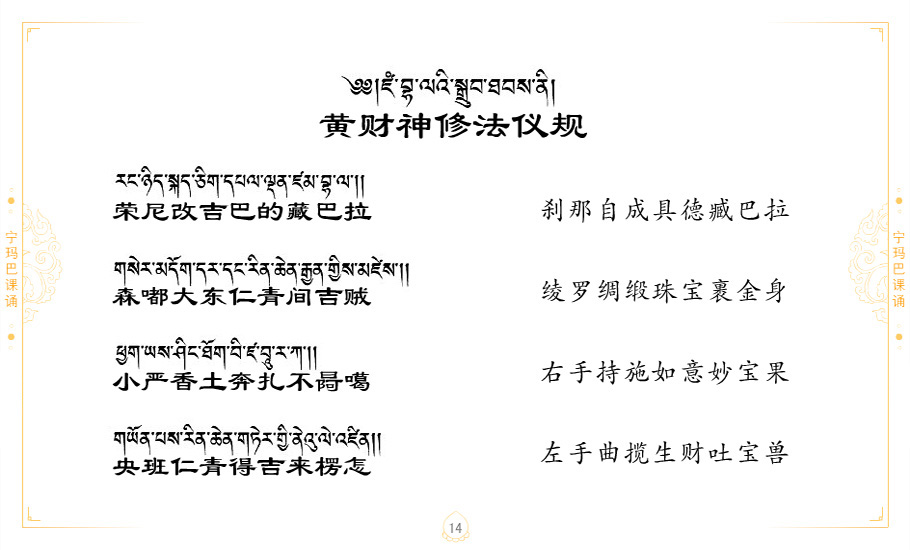 ༄༅།།ཛཾ་བྷ་ལའི་སྒྲུབ་ཐབས་ནི།
黄财神修法仪规
རང་ཉིད་སྐད་ཅིག་དཔལ་ལྡན་ཛམ་བྷ་ལ།།
荣尼改吉巴的藏巴拉
刹那自成具德臧巴拉
གསེར་མདོག་དར་དང་རིན་ཆེན་རྒྱན་གྱིས་མཛེས།།
森嘟大东仁青间吉贼
绫罗绸缎珠宝裹金身
ཕྱག་ཡས་ཤིང་ཐོག་བི་ཛ་བཱུ་ར་ཀ།།
小严香土奔扎不呙噶
右手持施如意妙宝果
གཡོན་པས་རིན་ཆེན་གཏེར་གྱི་ནེའུ་ལེ་འཛིན།།
央班仁青得吉来楞怎
左手曲揽生财吐宝兽
宁玛巴课诵
宁玛巴课诵
14